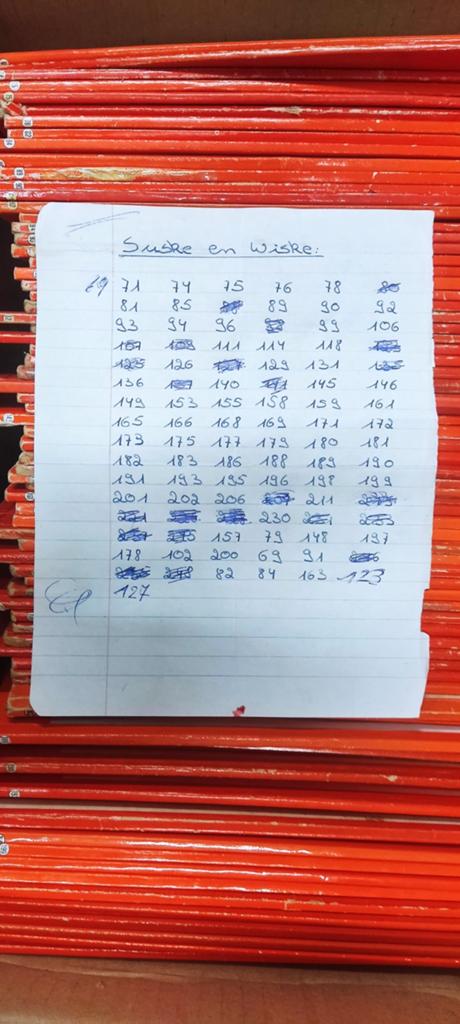 Suske en Wiske:
69 71 74 75 76 78
81 85 89 90 92
93 94 96 99 106
111 114 118
126 129 131
136 140 145 146
149 153 155 158 159 161
165 166 168 169 171 172
173 175 177 179 180 181
182 183 186 188 189 190
191 193 195 196 198 199
201 202 206 211
230
157 79 148 197
178 102 200 69 91
82 84 163 123
127